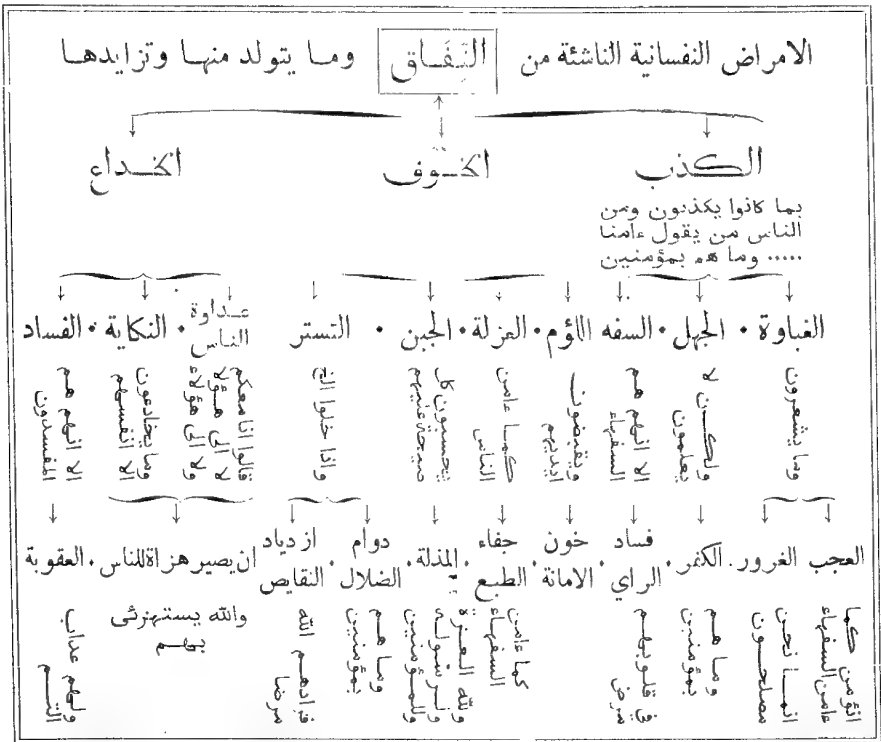 الامراض النفسانية الناشئة من النِّفَاق وما يتولد منها وتزايدها
الكذب
الخوف
الخداع
بما كانوا يكذبون ومن
الناس من يقول ءامنا
..... وما هم بمؤمنين
الغباوة • الجهل • السفه • اللؤم • العزلة • الجبن • التستر
عداوة
الناس • النكاية • الفساد
وما يشعرون
ولكن لا
يعلمون
الا انهم هم
السفهاء
ويقبضون
ايديهم
كما ءامن
الناس
يحسبون كل
صيحة عليهم
واذا خلوا الخ
قالوا انا معكم
لا الى هؤلاء
ولا الى هؤلاء
وما يخادعون
الا انفسهم
الا انهم هم
المفسدون
العجب
الغرور •
الكفر •
فساد
الراي •
خون
الامانة
جفاء
الطبع •
المذلة •
دوام
الضلال •
ازدياد
النقايص
ان يصير هزأة للناس •
العقوبة
انؤمن كما
ءامن السفهاء
انما نحن
مصلحون
وما هم
بمؤمنين
في قلوبهم
مرض
كما ءامن
السفهاء
ولله العزة
ولرسوله
وللمؤمنين
وما هم
بمؤمنين
فزادهم الله
مرضا
والله يستهزئ
بهم
ولهم عذاب
اليم